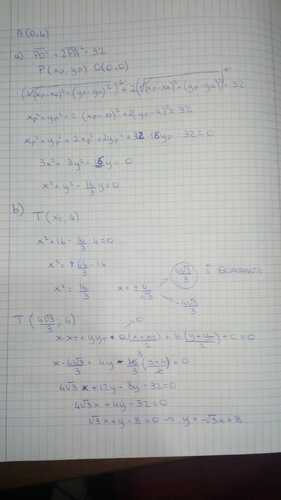 A(0,4)
a) PO² + 2PA² = 32
P(xp, yp) O(0,0)
(√(xp-xo)²+(yp-yo)²)² + 2(√(xp-xa)²+(yp-ya)²)² = 32
xp²+yp²+2(xp-0)²+2(yp-4)²=32
xp²+yp²+2xp²+2yp²+32-16yp-32=0
3x²+3y²-16y=0
x²+y²-16/3 y=0
b) T(x, 4)
x²+16-16/3·4=0
x²=+64/3-16
x²=16/3 x=±4/√3 4√3/3 I QUADRANTE
-4√3/3
T(4√3/3, 4)
x·x₀+y·y₀+a(x+x₀/2)+b(y+y₀/2)+c=0
x·4√3/3+4y-16/3(y+4/2)=0
4√3x+12y-8y-32=0
4√3x+4y-32=0
√3x+y-8=0 → y=-√3x+8